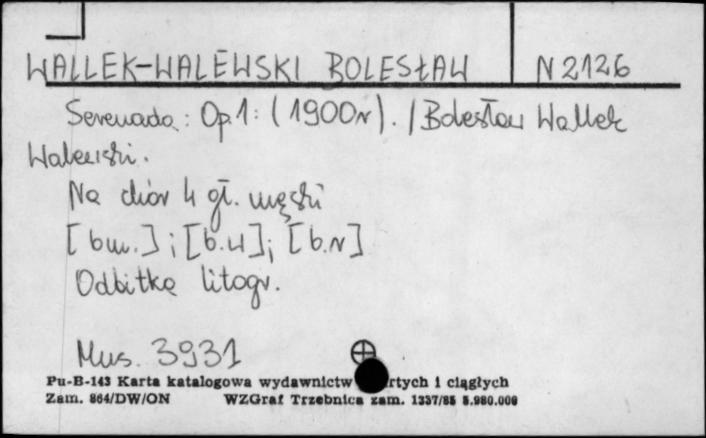 WALLEK-WALEWSKI BOLESŁAW N 2126
Serenada: Op. 1: (1900r). / Bolesław Wallek
Walewski.
Na chór 4 gł. męski
[b.m.]; [b.w]; [b.r]
Odbitka litogr.
Mus. 3931
Pu-B-143 Karta katalogowa wydawnictw rtych i ciągłych
Zam. 864/DW/ON WZGraf Trzebnica zam. 1337/85 5.980.000